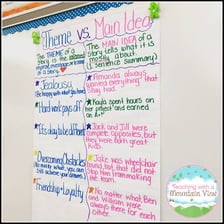 Theme vs. Main Idea
The THEME of a
story is the
The MAIN IDEA of a
story tells what it
is mostly about.
(1 Sentence Summary)
Jealousy
Amanda always
worried everything that
Shay had.
Hard work pays off
Kayla spent hours on
her project and
earned an A+
It's okay to be different
Jack and Jill were
complete opposites but
they were both great
kids.
Overcoming Obstacles
Jake was wheelchair
bound but that did not
stop him from making
Friendship + Loyalty
No matter what, Ben
and William were
always there for each
other.
Teaching with a
Mountain View